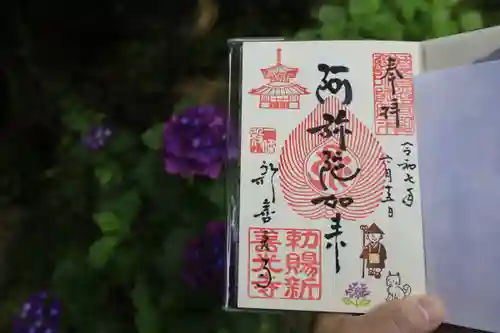 奉拝
令和七年
六月十五日
阿弥陀如来
新善光寺
勅賜新
善光寺